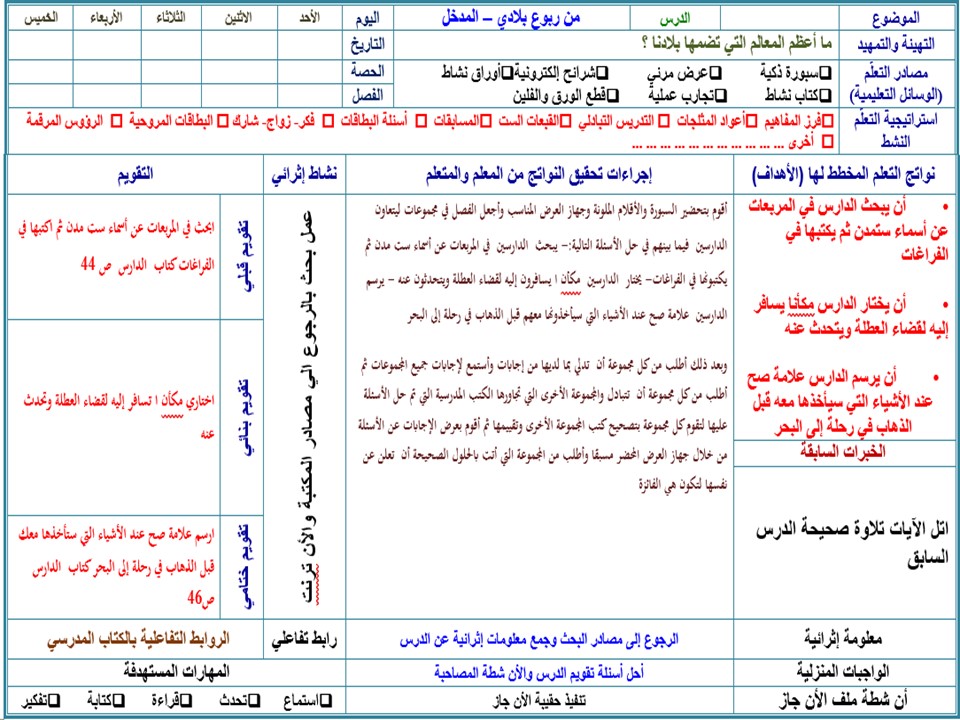 الموضوع
الدرس
من ربوع بلادي – المدخل
اليوم
الأحد
الاثنين
الثلاثاء
الأربعاء
الخميس
التهيئة والتمهيد
ما أعظم المعالم التي تضمها بلادنا ؟
التاريخ
مصادر التعلّم
(الوسائل التعليمية)
❑سبورة ذكية ❑عرض مرئي ❑شرائح إلكترونية❑أوراق نشاط
❑كتاب نشاط ❑تجارب عملية ❑قطع الورق والفلين
الحصة
الفصل
استراتيجية التعلّم
النشط
❑فرز المفاهيم ❑أعواد المثلجات ❑ التدريس التبادلي ❑القبعات الست ❑المسابقات ❑ أسئلة البطاقات ❑ فكر- زواج- شارك❑البطاقات المروحية ❑ الرؤوس المرقمة
❑ أخرى ... ... ... ... ... ... ... ... ... ... ...
نواتج التعلم المخطط لها (الأهداف)
إجراءات تحقيق النواتج من المعلم والمتعلم
نشاط إثرائي
التقويم
• أن يبحث الدارس في المربعات
عن أسماء ستمدن ثم يكتبها في
الفراغات
• أن يختار الدارس مكأنا يسافر
إليه لقضاء العطلة ويتحدث عنه
• أن يرسم الدارس علامة صح
عند الأشياء التي سيأخذها معه قبل
الذهاب في رحلة إلى البحر
الخبرات السابقة
اتل الآيات تلاوة صحيحة الدرس
السابق
أقوم بتحضير السبورة والأقلام الملونة وجهاز العرض المناسب وأجعل الفصل في مجموعات ليتعاون
الدارسين فيما بينهم في حل الأسئلة التالية:– يبحث الدارسين في المربعات عن أسماء ست مدن ثم
يكتبونها في الفراغات– يختار الدارسين مكأن ا يسافرون إليه لقضاء العطلة ويتحدثون عنه – يرسم
الدارسين علامة صح عند الأشياء التي سيأخذونها معهم قبل الذهاب في رحلة إلى البحر
وبعد ذلك أطلب من كل مجموعة أن تدلي بما لديها من إجابات وأستمع لإجابات جميع المجموعات ثم
أطلب من كل مجموعة أن تتبادل والمجموعة الأخرى التي تجاورها الكتب المدرسية التي تم حل الأسئلة
عليها لتقوم كل مجموعة بتصحيح كتب المجموعة الأخرى وتقييمها ثم أقوم بعرض الإجابات عن الأسئلة
من خلال جهاز العرض المحضر مسبقا وأطلب من المجموعة التي أتت بالحلول الصحيحة أن تعلن عن
نفسها لتكون هي الفائزة
عمل بحث بالرجوع الي مصادر المكتبة والأن ترنت
تقويم قبلي
ابحث في المربعات عن أسماء ست مدن ثم اكتبها في
الفراغات كتاب الدارس ص 44
تقويم بنائي
اختاري مكأن ا تسافر إليه لقضاء العطلة وتحدث
عنه
تقويم ختامي
ارسم علامة صح عند الأشياء التي ستأخذها معك
قبل الذهاب في رحلة إلى البحر كتاب الدارس
ص46
معلومة إثرائية
الرجوع إلى مصادر البحث وجمع معلومات إثرائية عن الدرس
رابط تفاعلي
الروابط التفاعلية بالكتاب المدرسي
الواجبات المنزلية
أحل أسئلة تقويم الدرس والأن شطة المصاحبة
المهارات المستهدفة
أن شطة ملف الأن جاز
تنفيذ حقيبة الأن جاز
❑استماع ❑تحدث ❑قراءة ❑كتابة ❑تفكير